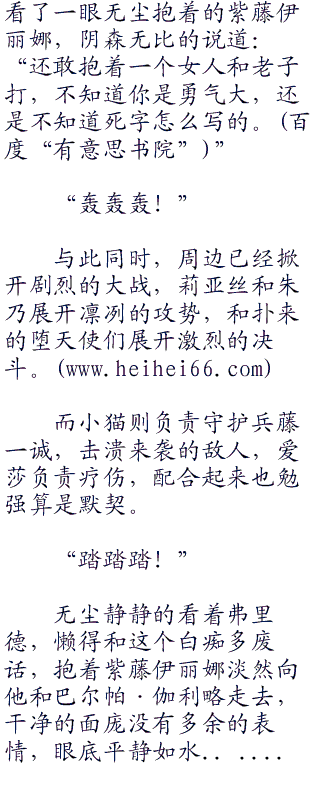 看了一眼无尘抱着的紫藤伊
丽娜，阴森无比的说道：
“还敢抱着一个女人和老子
打，不知道你是勇气大，还
是不知道死字怎么写的。(百
度“有意思书院”)”
“轰轰轰！”
与此同时，周边已经掀
开剧烈的大战，莉亚丝和朱
乃展开凛冽的攻势，和扑来
的堕天使们展开激烈的决
斗。(www.heihei66.com)
而小猫则负责守护兵藤
一诚，击溃来袭的敌人，爱
莎负责疗伤，配合起来也勉
强算是默契。
“踏踏踏！”
无尘静静的看着弗里
德，懒得和这个白痴多废
话，抱着紫藤伊丽娜淡然向
他和巴尔帕·伽利略走去，
干净的面庞没有多余的表
情，眼底平静如水.. ....